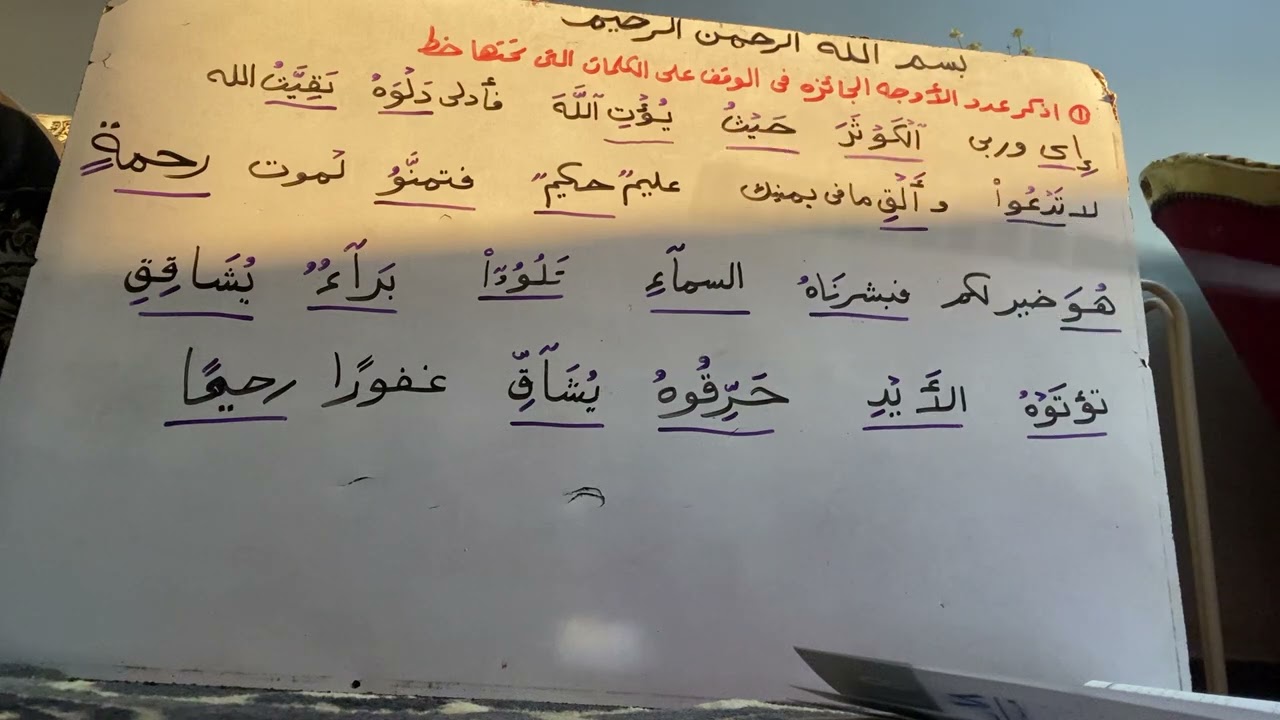 بسم الله الرحمن الرحيم
① اذكر عدد الأوجه الجائزه فى الوقف على الكلمات التى تحتها خط
إِى وربى ٱلْكَوْثَرَ حَيْثُ يُؤْتِ ٱللَّهَ فأدلى دَلْوَهُ بَقِيَّتُ الله
لا تَدْعُواْ وأَلْقِ ما فى يمينك عليمٌ حكيمٌ فتمنَّوُ لموت رحمةٍ
هُوَ خير لكم فبشرنَاهُ السمآءِ تَلْوُۥٓاْ بَرَآءٌ يُشَاقِقِ
تؤتَوْهُ الأَيْدِ حَرِّقُوهُ يُشَآقِّ غفورًا رحيمًا